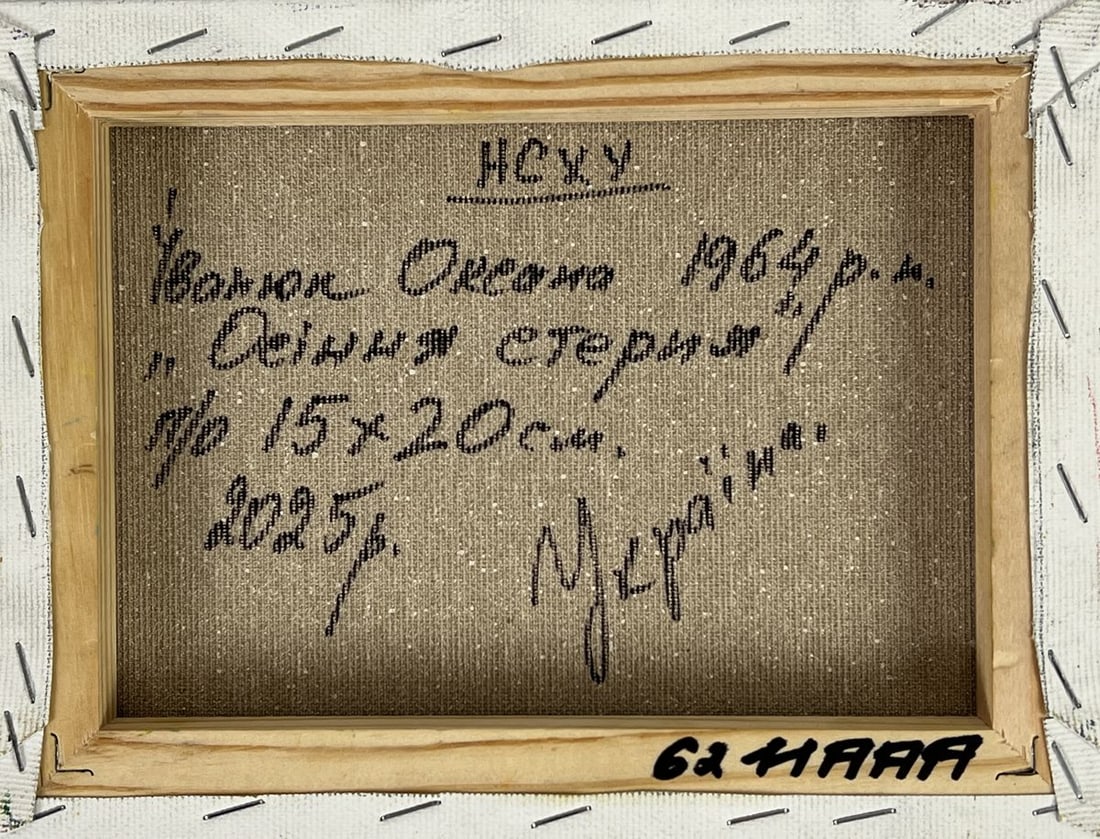 НСХУ
Іванюк Оксана 1964 р.н.
„Осіння стерня"
п/о 15х20см.
2025р. Україна.
62 НААА